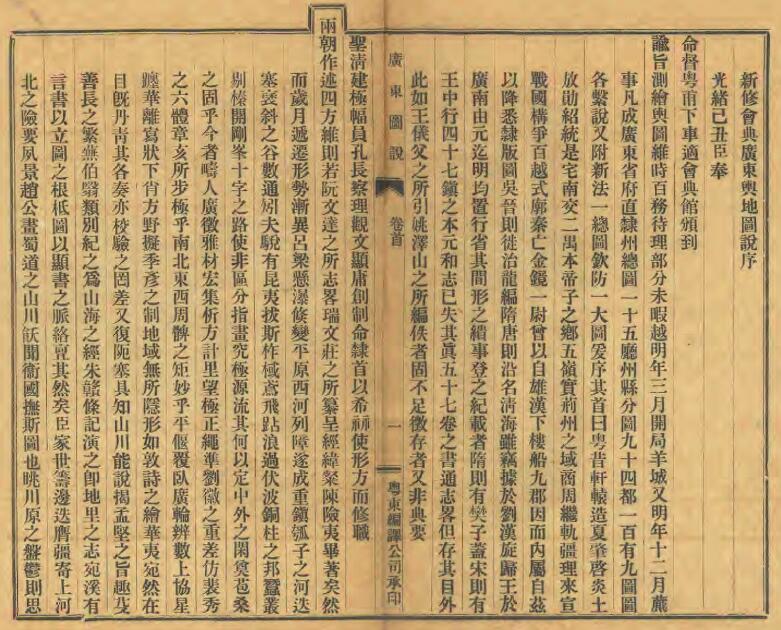 新修會典廣東輿地圖說序
光緒己丑臣奉
命督粤甫下車適會典館頒到
諭旨測繪輿圖維時百務待理部分未暇越明年三月開局羊城又明年十二月蕆
事凡成廣東省府直隸州總圖一十五廳州縣分圖九十四都一百有九圖圖
各繫說又附新法一總圖欽防一大圖爰序其首曰粤昔軒轅造夏肇啓炎土
放勛紹統是宅南交二禺本帝子之鄉五嶺實荊州之域商周繼軌疆理來宣
戰國構爭百越式廓秦亡金鏡一尉曾以自雄漢下樓船九郡因而內屬自茲
以降悉隸版圖吳晉則徙治龍編隋唐則沿名淸海雖竊據於劉漢旋歸王於
廣南由元迄明均置行省其間形之繢事登之紀載者隋則有樊子蓋宋則有
王中行四十七鎭之本元和志已失其眞五十七卷之書通志畧但存其目外
此如王儀父之所引姚澤山之所編佚者固不足徵存者又非典要
廣東圖說
卷首
一
粤東編譯公司承印
聖淸建極幅員孔長察理觀文顯庸創制命隸首以希祘使形方而修職
兩朝作述四方維則若阮文達之所志畧瑞文莊之所纂呈經緯粲陳險夷畢著矣然
而歲月遞遷形勢漸異呂梁懸瀑倏變平原西河列障遂成重鎭瓠子之河迭
塞褒斜之谷數通矧夫駾有昆夷拔斯柞棫鳶飛跕浪過伏波銅柱之邦蠶叢
剔榛開剛峯十字之路使非區分指畫究極源流其何以定中外之閑奠苞桑
之固乎今者疇人廣徵雅材宏集析方計里望極正繩準劉徽之重差仿裴秀
之六體章亥所步極乎南北東西周髀之矩妙乎平偃覆臥廣輪辨數上協星
躔華離寫狀下肖方野擬季彥之制地域無所隱形如敦詩之繪華夷宛然在
目旣丹靑其各奏亦校驗之罔差又復阨塞具知山川能說揭孟堅之旨趣芟
善長之繁蕪伯翳類別紀之爲山海之經朱贛條記演之卽地里之志宛溪有
言書以立圖之根柢圖以顯書之脈絡覽其然矣臣家世籌邊迭膺疆寄上河
北之險要夙景趙公畫蜀道之山川飫聞衞國撫斯圖也眺川原之盤鬱則思